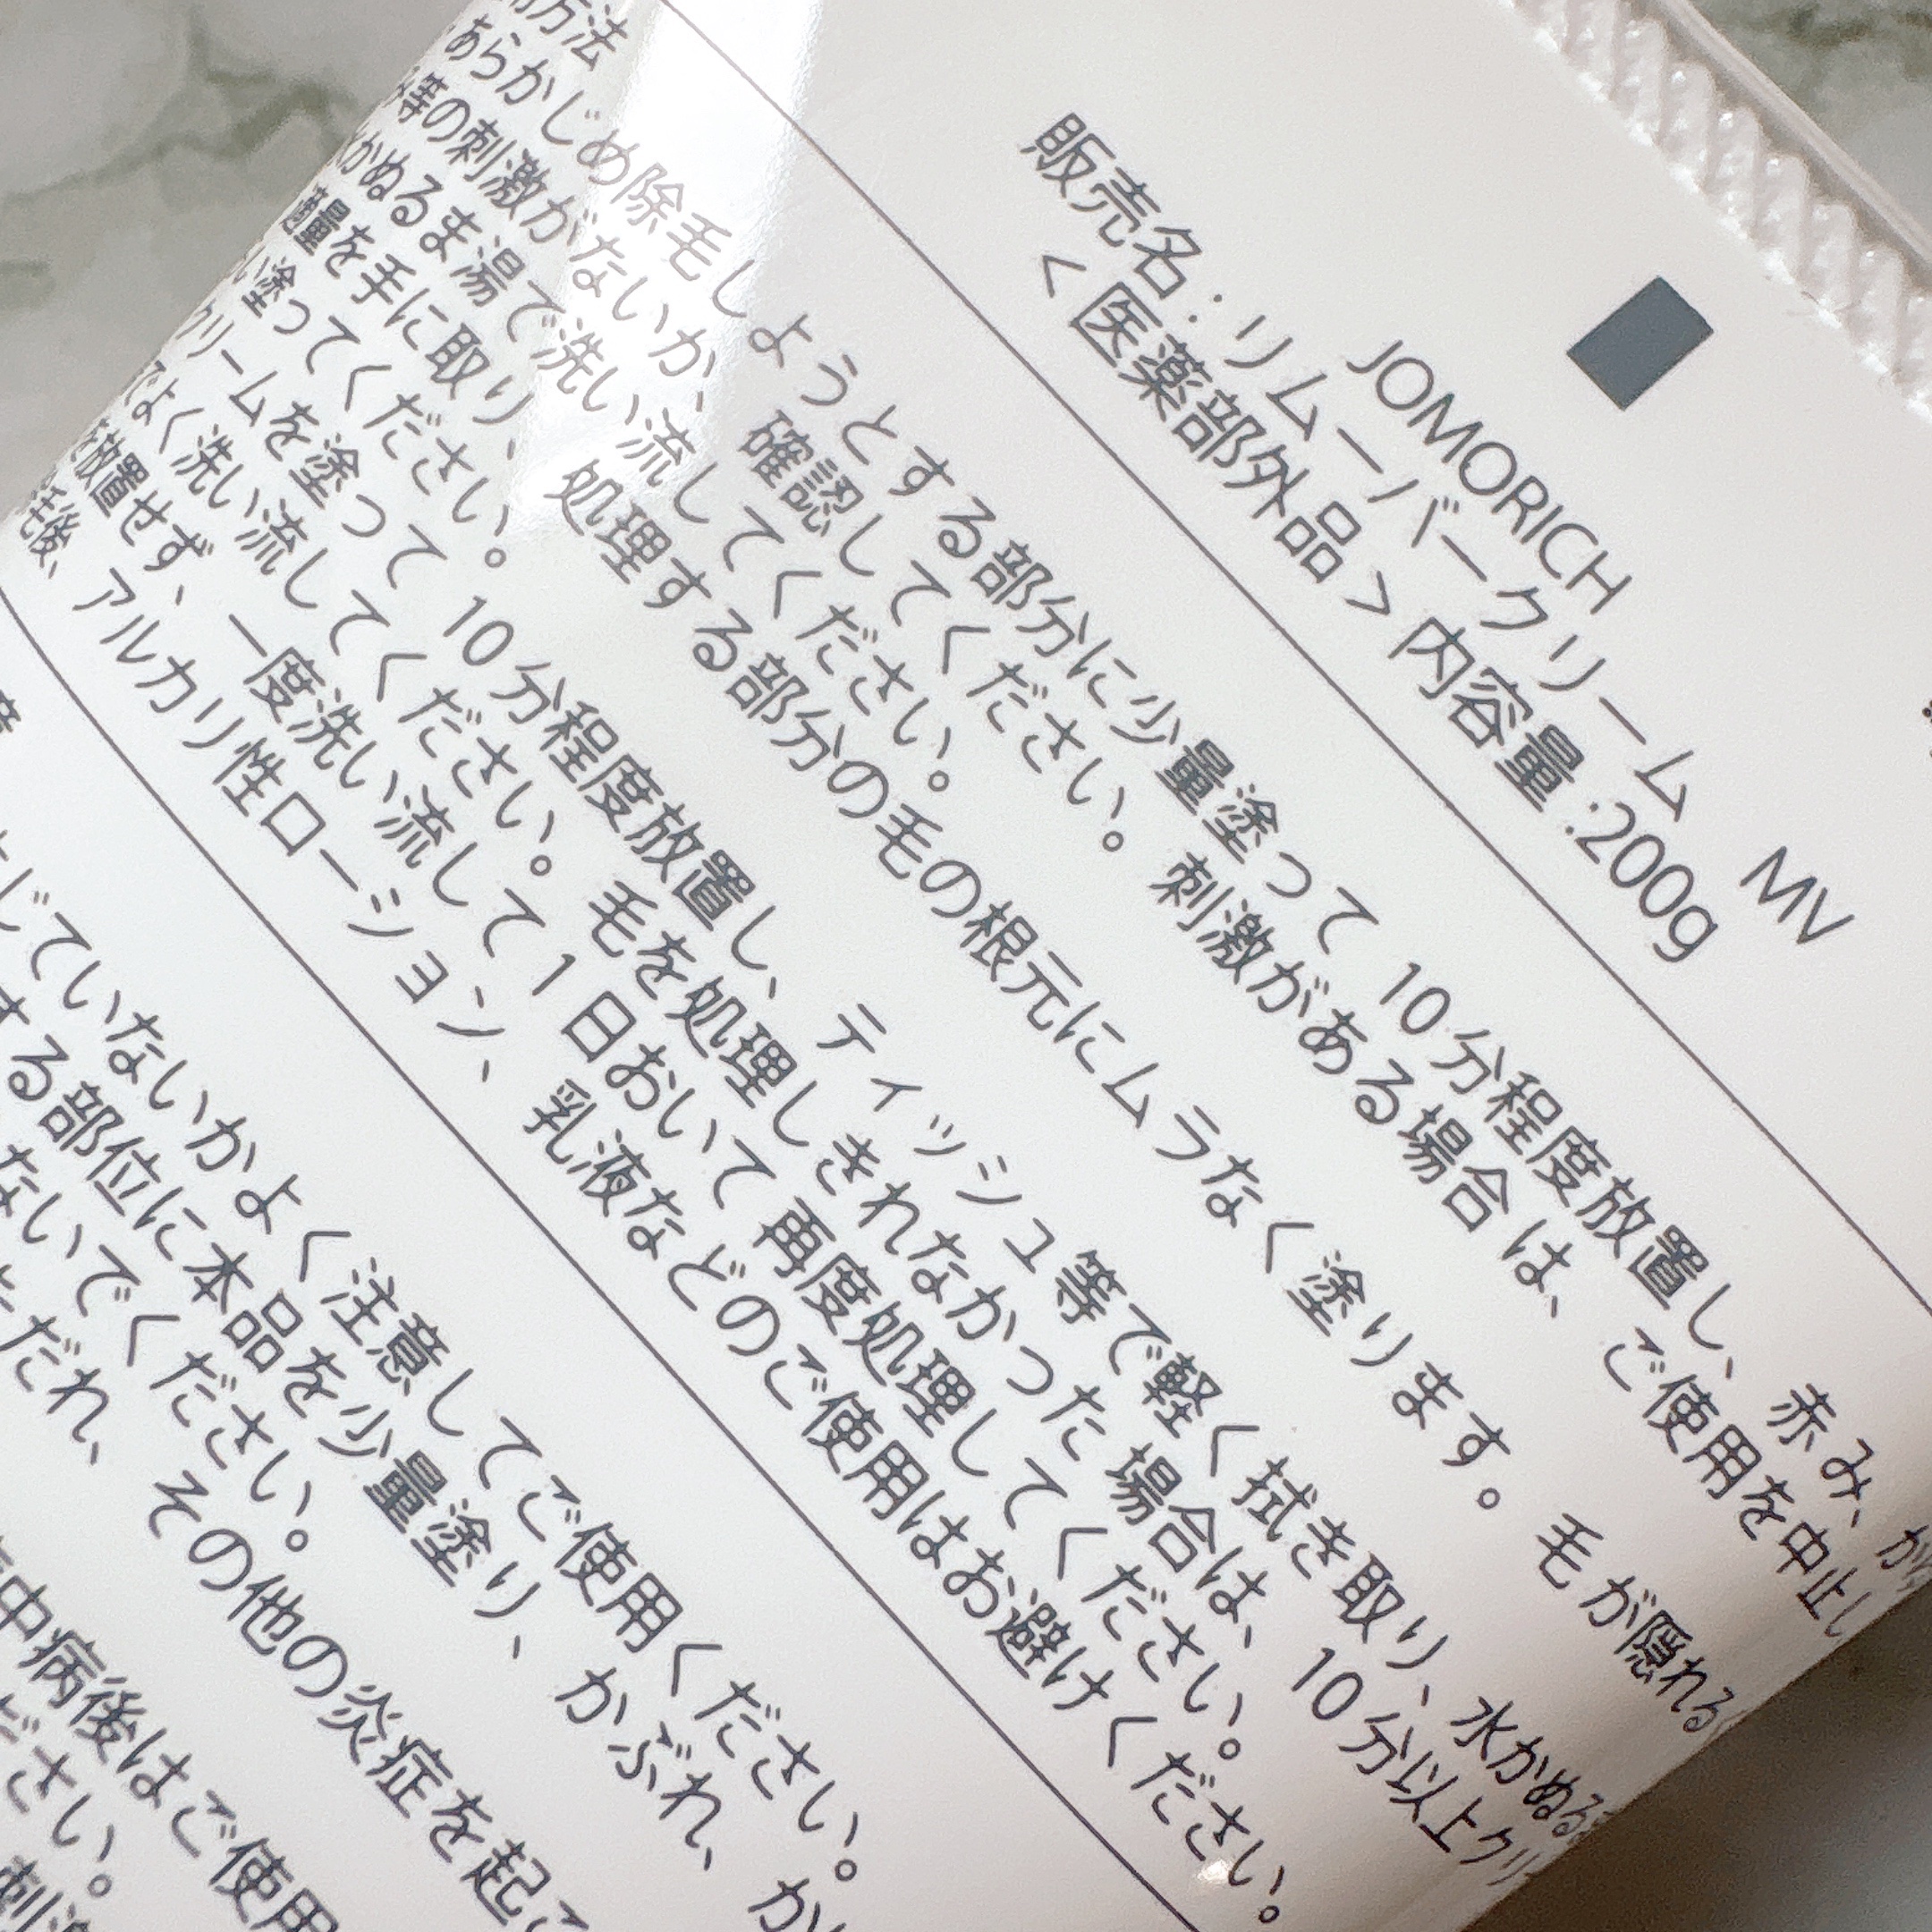 JOMORICH
販売名：リムーバークリーム　MV
＜医薬部外品＞内容量:200g
方法
あらかじめ除毛しようとする部分に少量塗って 10 分程度放置し、赤み、か
等の刺激がないか、確認してください。刺激がある場合は、ご使用を中止し
かぬるま湯で洗い流してください。
適量を手に取り、処理する部分の毛の根元にムラなく塗ります。毛が隠れる
い塗ってください。
クリームを塗って 10 分程度放置し、ティッシュ等で軽く拭き取り、水かぬる
でよく洗い流してください。毛を処理しきれなかった場合は、10 分以上クリ
を放置せず、一度洗い流して 1 日おいて再度処理してください。
毛後、アルカリ性ローション、乳液などのご使用はお避けください。
じていないかよく注意してご使用ください。
する部位に本品を少量塗り、かぶれ、か
ないでください。
ただれ、その他の炎症を起こ
中病後はご使用
ださい。
刺激